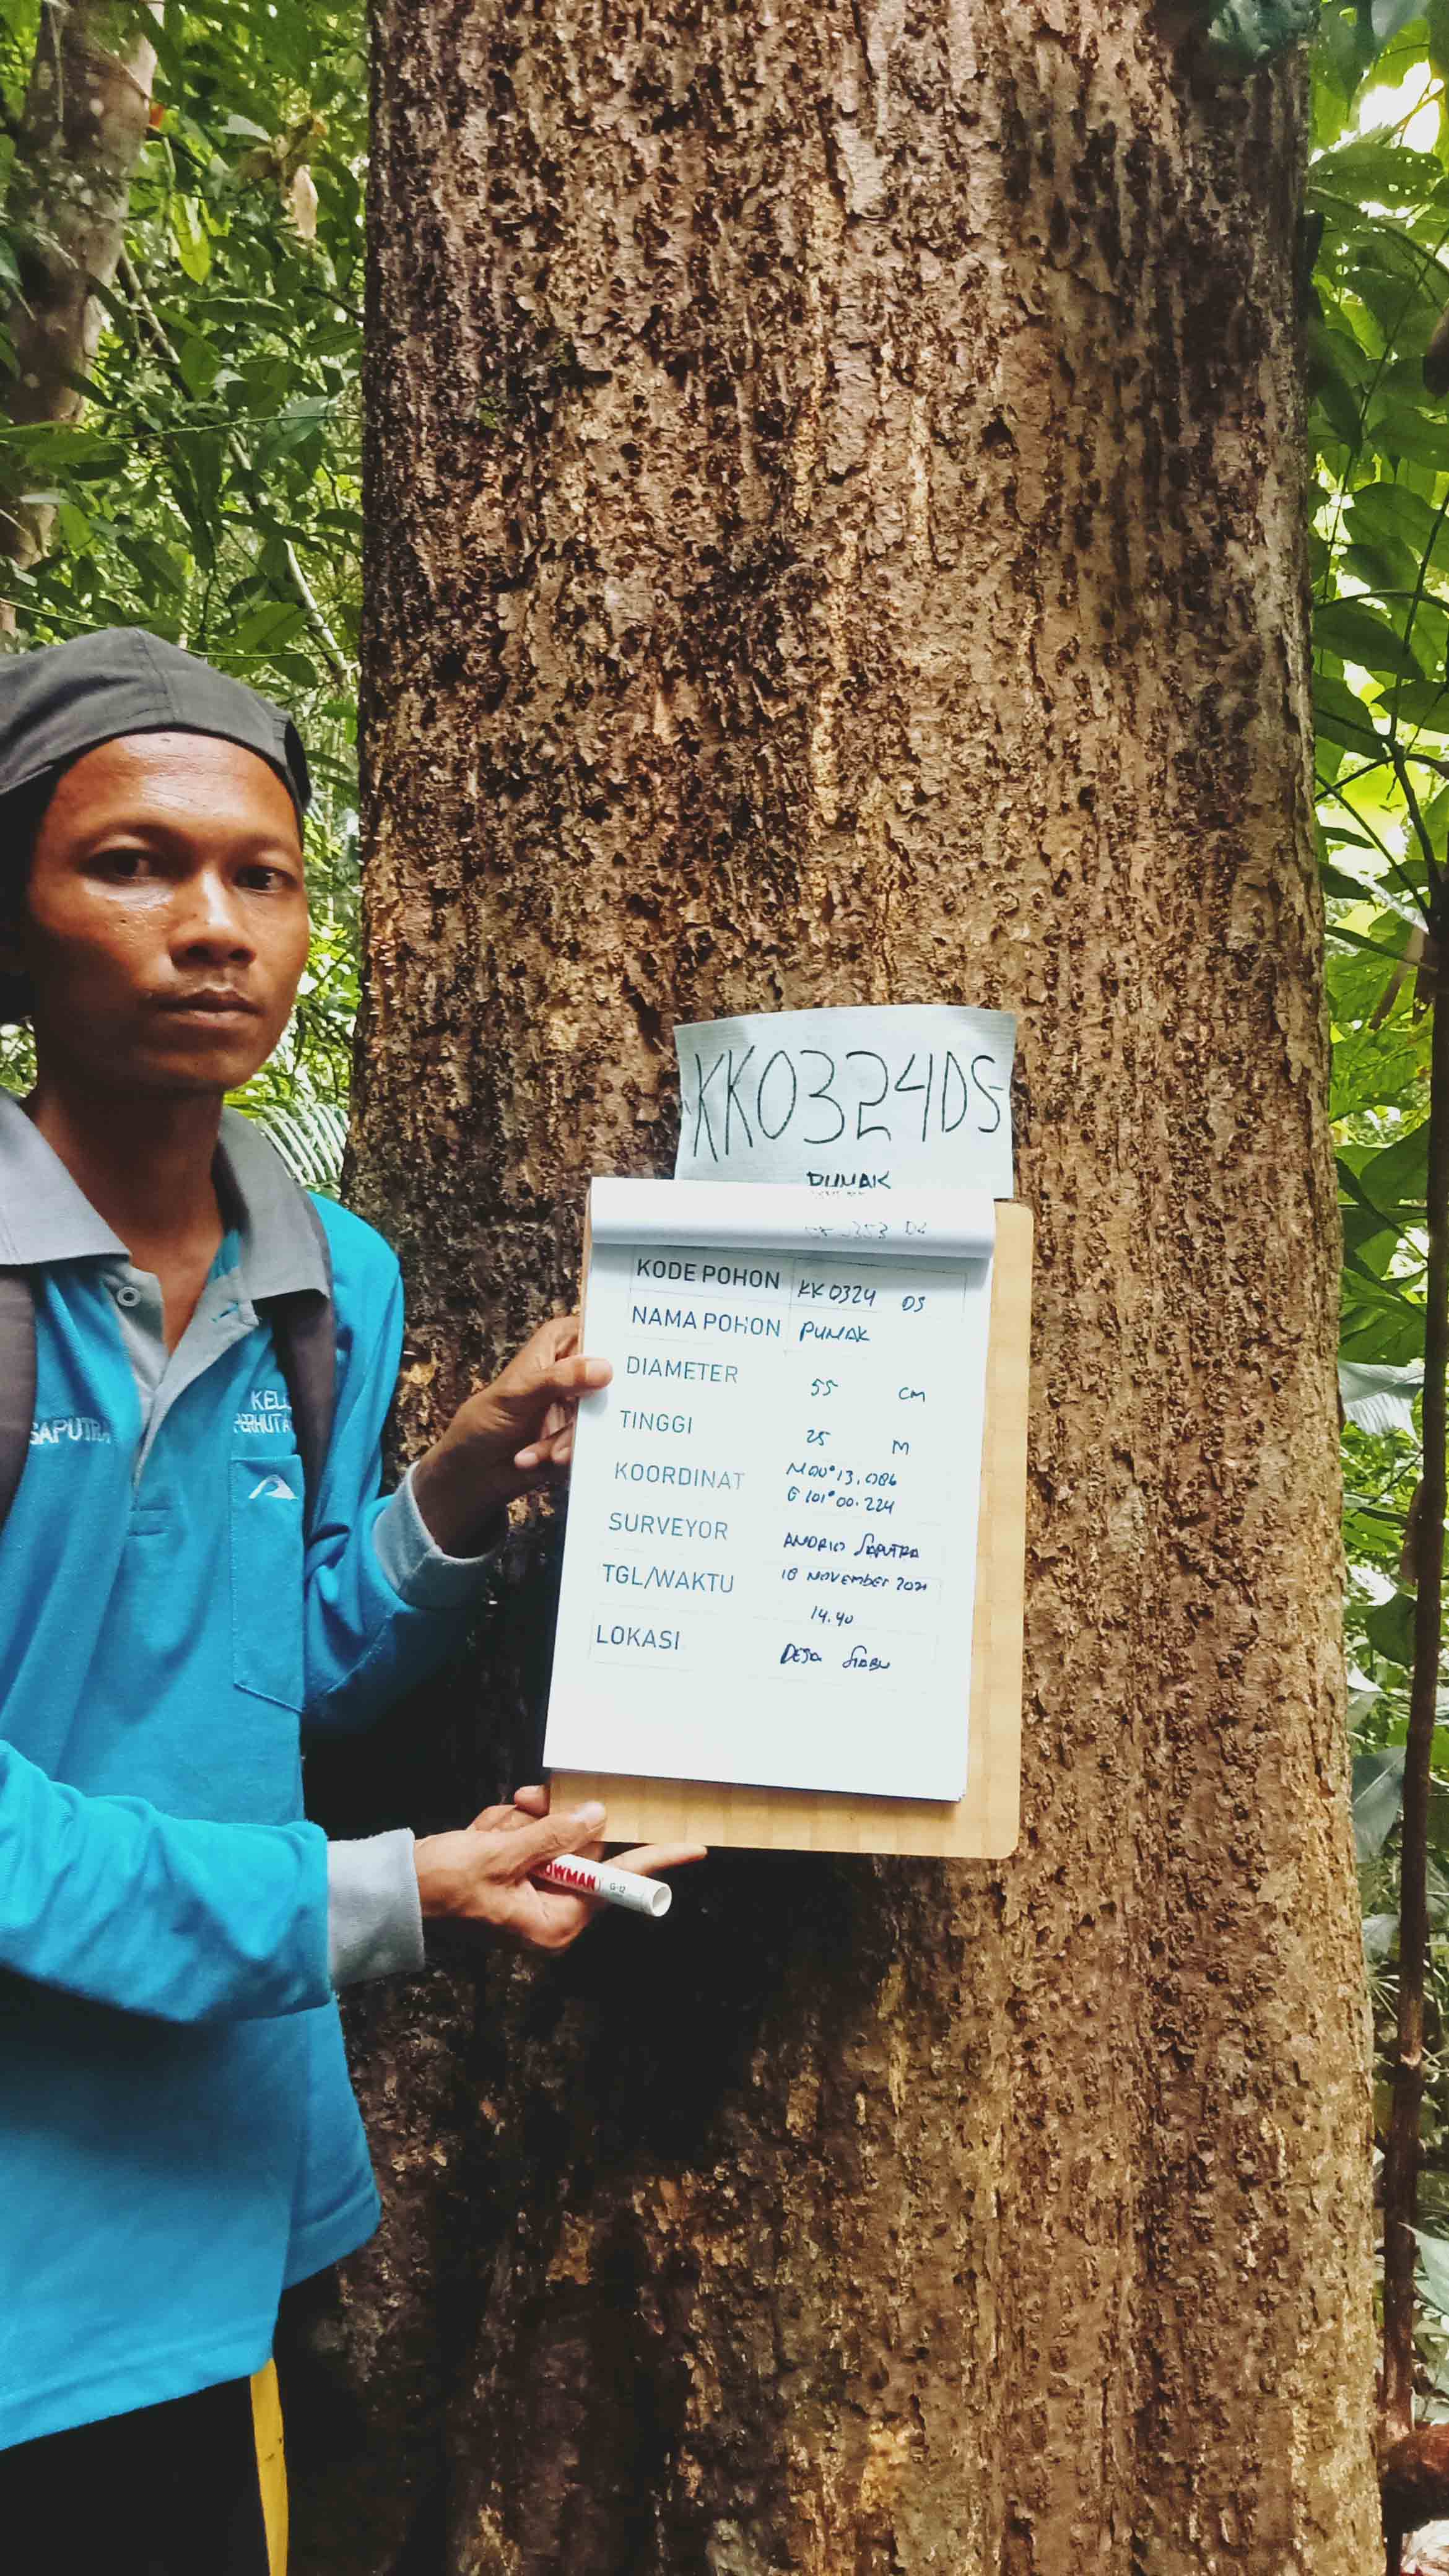 KK0324DS
PUNAK
KODE POHON KK 0324 DS
NAMA POHON PUNAK
DIAMETER 55 CM
TINGGI 25 M
KOORDINAT N00°13.086
E 101°00.224
SURVEYOR ANDRIO SAPUTRA
TGL/WAKTU 18 NOVEMBER 2021
14.40
LOKASI DESA SIABU
SAPUTRA
KEL
PERHUTA
OWMAN G-12